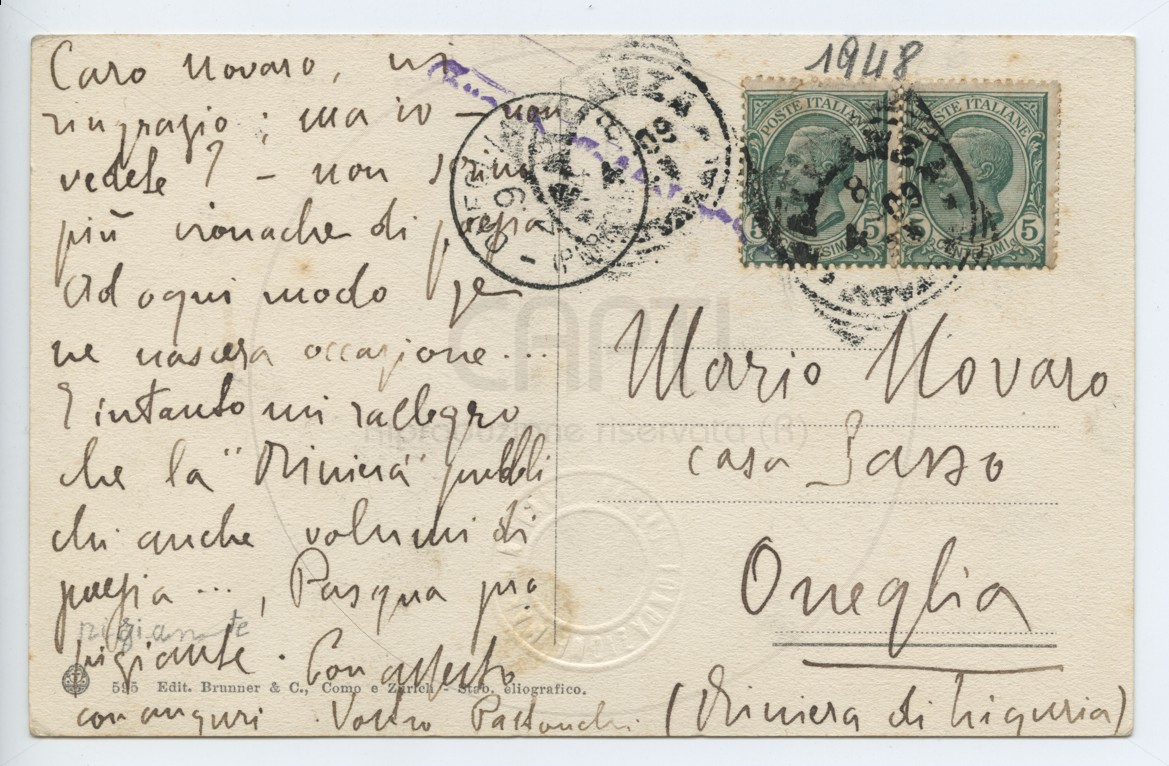 Caro Novaro, vi
ringrazio; ma io - non
vedete? - non scrivo
più cronache di poesia
Ad ogni modo se
ne nascerà occasione...
E intanto mi rallegro
che la "Riviera" pubbli
chi anche volumi di
poesia ..., Pasqua pio
pigiante
pigiante. Con affetto
con auguri Vostro Pastonchi
595 Edit. Brunner & C., Como e Zürich - Stab. eliografico.
1948
POSTE ITALIANE
POSTE ITALIANE
5 CENTESIMI 5
CENTESIMI 5
8 4 09
8 4 09
Mario Novaro
casa Sasso
Oneglia
(Riviera di Liguria)
CARTL
riproduzione riservata (R)